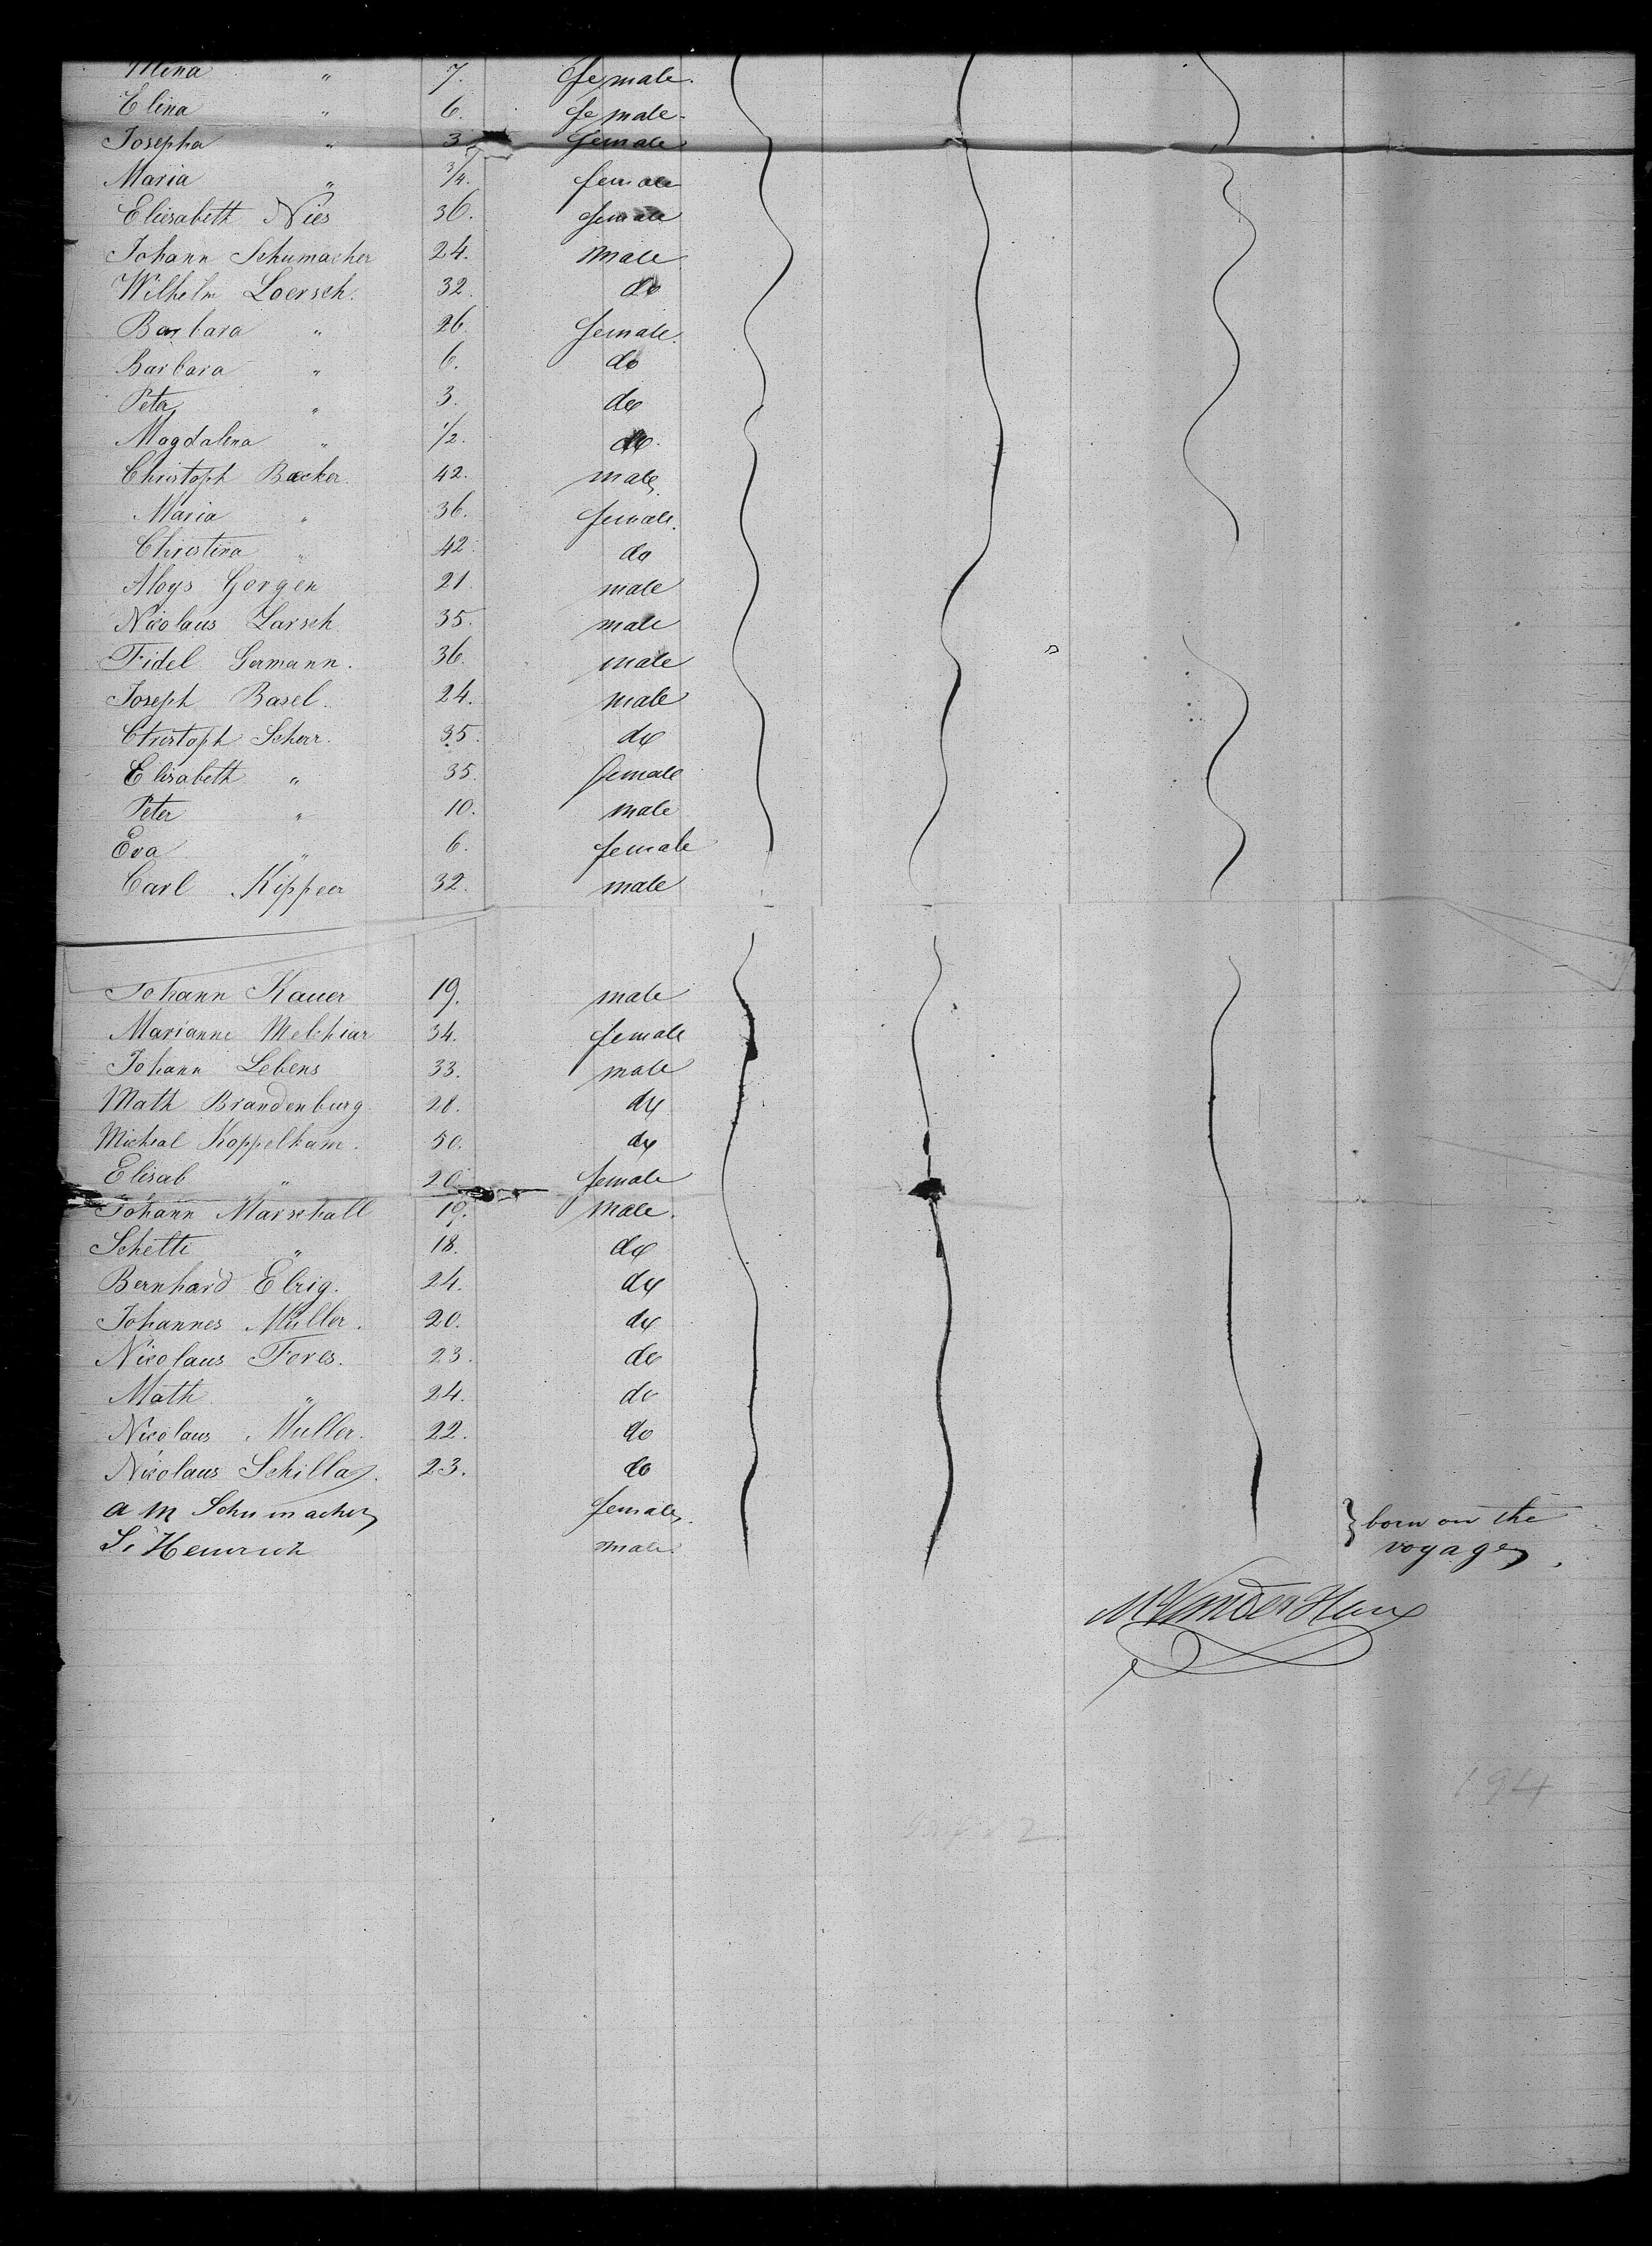 Mina " 7. female.
Elina " 6. female.
Josepha " 3 female
Maria " 3/4. female
Eliesabeth Nies 36. female
Johann Schumacher 24. male
Wilhelm Loersch. 32. do
Barbara " 26. female.
Barbara " 6. do
Peter " 3. do
Magdalena " 1/2. do.
Christoph Backer 42. male
Maria " 36. female.
Christina " 42 do
Aloys Gorgen 21. male
Nicolaus Larsch 35. male
Fidel Germann. 36. male
Joseph Basel. 24. male
Christoph Scherr. 35. do
Elisabeth " 35. female
Peter " 10. male
Eva " 6. female
Carl Kipper 32. male
Johann Kauer 19. male
Marianne Melchiar 34. female
Johann Lebens 33. male
Math Brandenburg 28. do
Micheal Koppelkam. 50. do
Elisab " 20 female
Johann Marschall 19. male.
Schetti " 18. do
Bernhard Elrig. 24. do
Johannes Müller. 20. do
Nicolaus Feres. 23. do
Math " 24. do
Nicolaus Muller. 22. do
Nicolaus Schilla. 23. do
a m Schumacher female. } born on the
Heinrich male. voyage.
194